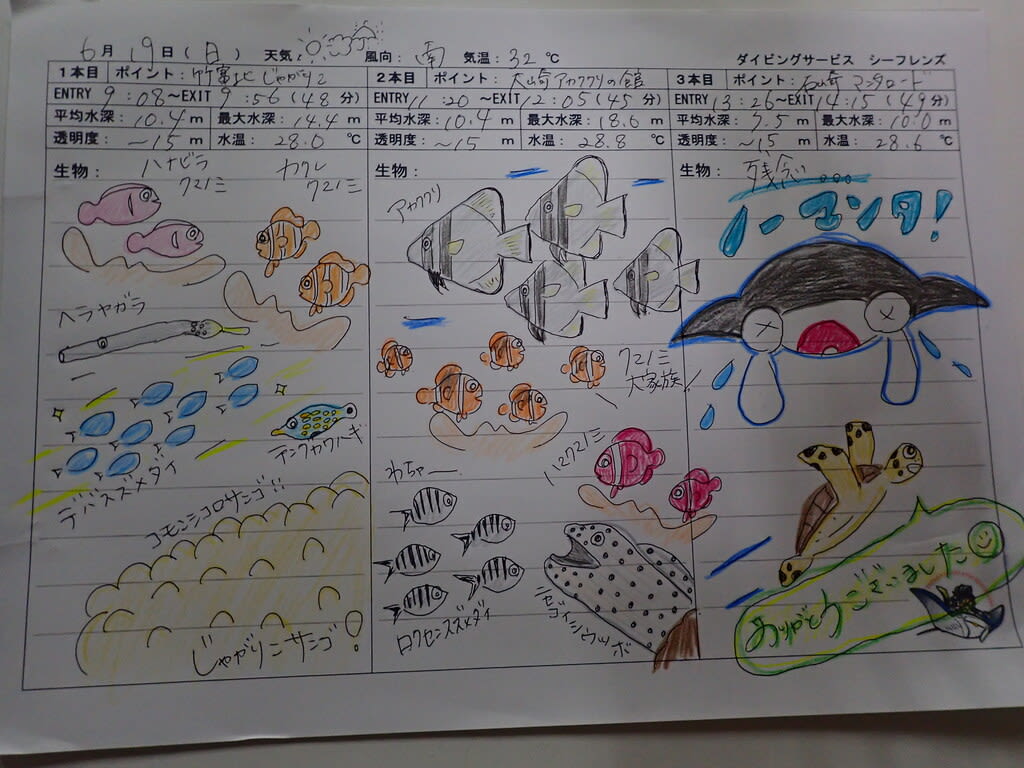 6月19日(日) 天気: 風向: 南 気温: 32℃ ダイビングサービス シーフレンズ
1本目 ポイント: 竹富北 じゃがりこ
ENTRY 9:08~EXIT 9:56(48分)
平均水深: 10.4 m 最大水深: 14.4 m
透明度: ~15 m 水温: 28.0 ℃
生物: ハナビラクマノミ カクレクマノミ
ヘラヤガラ
デバスズメダイ
テングカワハギ
コモンシコロサンゴ!!
じゃがりこサンゴ!
2本目 ポイント: 大崎アカククリの館
ENTRY 11:20~EXIT 12:05(45分)
平均水深: 10.4 m 最大水深: 18.6 m
透明度: ~15 m 水温: 28.8 ℃
生物:
アカククリ
クマノミ
大家族!
ハマクマノミ
わちゃー
ロクセンスズメダイ
ニセゴイシウツボ
3本目 ポイント: 石崎 マンタロード
ENTRY 13:26~EXIT 14:15(49分)
平均水深: 7.5 m 最大水深: 10.0 m
透明度: ~15 m 水温: 28.6 ℃
生物: 残念...
ノーマンタ!
ありがとうございました